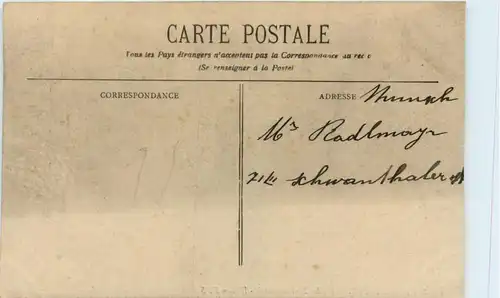 CARTE POSTALE
Tous les Pays étrangers n'acceptent pas la Correspondance au recto
(Se renseigner à la Poste)
CORRESPONDANCE
ADRESSE Munich
Mr Radlmayr
Schwanthaler